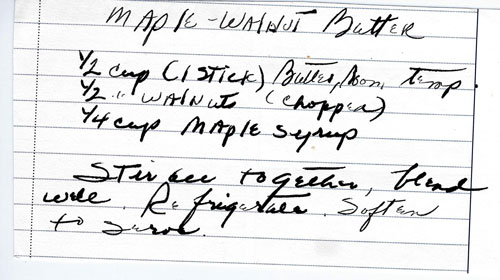 Maple-Walnut Butter
1/2 cup (1 stick) Butter, Room temp.
1/2 " Walnuts (chopped)
1/4 cup Maple Syrup
Stir all together, blend
well. Refrigerate. Soften
to serve.